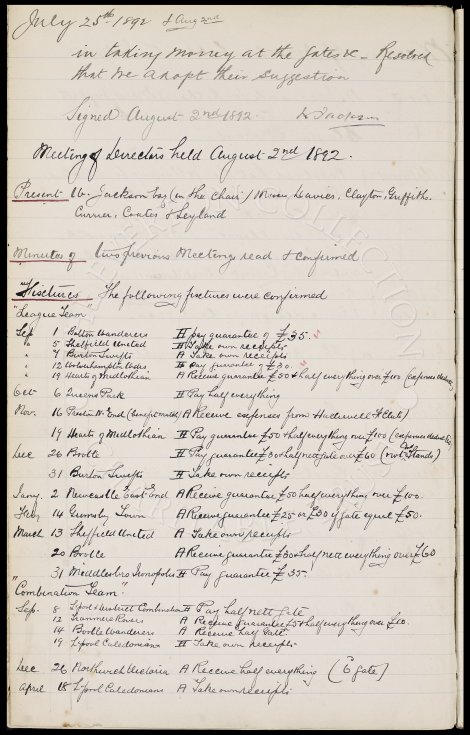 July 25th 1892 & Aug 2nd
in taking money at the gates &c - Resolved
that we adopt their suggestion
Signed August 2nd 1892. W Jackson
Meeting of Directors held August 2nd 1892.
Present W. Jackson Esq (in the Chair) Messrs Davies, Clayton, Griffiths,
Currier, Coates & Leyland
Minutes of two previous Meetings read & confirmed
"Fixtures" The following fixtures were confirmed
"League Team"
Sep 1 Bolton Wanderers H pay guarantee of £35.
" 5 Sheffield United H Take own receipts
" 7 Burton Swifts A Take own receipts
" 12 Wolverhampton Wdrs H pay guarantee of £30.
" 19 Hearts of Midlothian A Receive guarantee £50 & half everything over £100 (expenses deducted)
Oct 6 Queens Park H Pay half everything
Nov. 16 Preston N. End A Receive expenses from
19 Hearts of Midlothian H Pay guarantee £50 & half everything over £100 (expenses deducted)
Dec 26 Bootle H Pay guarantee £30 & half nett gate over £60 (not Stands)
31 Burton Swifts H Take own receipts
Jany. 2 Newcastle East End A Receive guarantee £50 half everything over £100.
Feby 14 Grimsby Town A Receive guarantee £25 or £30 if gate equal £50.
March 13 Sheffield United A Take own receipts
20 Bootle A Receive guarantee £30 & half nett everything over £60
31 Middlesbro Ironopolis H Pay guarantee £35.
"Combination Team"
Sep. 8 L'pool & District Combination H Pay half nett gate
12 Tranmere Rovers A Receive guarantee £5 & half everything over £10.
14 Bootle Wanderers A Receive half gate
19 L'pool Caledonians H Take own receipts
Dec 26 Northwich Victoria A Receive half everything (6 gate)
April 18 L'pool Caledonians A Take own receipts
EVERTON COLLECTION